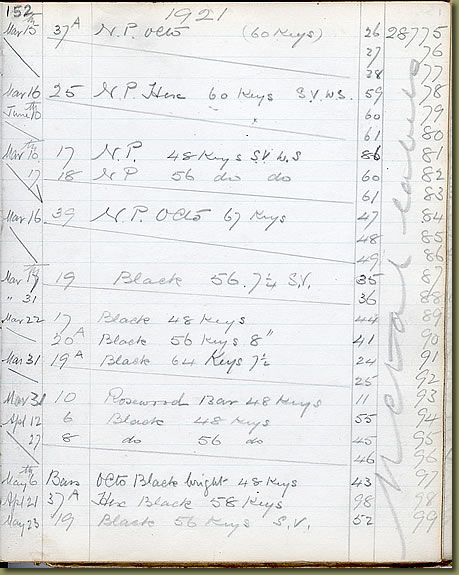 152 1921
Mar 15 37A N.P. Octo (60 Keys) 26 28775
27 76
28 77
Mar 16 25 N.P. Hex 60 Keys S.V. W.S. 59 78
June 10th " " 60 79
61 80
Mar 10th 17 N.P. 48 Keys S.V. W.S 86 81
17 18 N.P 56 do do 60 82
61 83
Mar 16 39 N.P. Octo 67 Keys 47 84
48 85
49 86
Mar 17th 19 Black 56. 7¼ S.V. 35 87
" 31 36 88
Mar 22 17 Black 48 Keys 44 89
20A Black 56 Keys 8" 41 90
Mar 31 19A Black 64 Keys 7½ 24 91
25 92
Mar 31 10 Rosewood Bar 48 Keys 11 93
Apl 12 6 Black 48 Keys 55 94
27 8 do 56 do 45 95
46 96
May 6th Bass Octo Black bright 48 Keys 43 97
Apl 21 37A Hex Black 58 Keys 98 98
May 23 19 Black 56 Keys S.V. 52 99
Metal